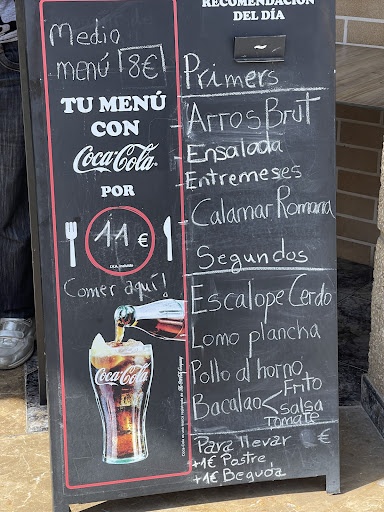 Medio
menú 8€
TU MENÚ
CON
Coca-Cola
POR
11 €
I.V.A. incluido
Comer aquí!
Coca-Cola
RECOMENDACIÓN
DEL DÍA
Primers
- Arros Brut
- Ensalada
- Entremeses
- Calamar Romana
Segundos
- Escalope Cerdo
Lomo plancha
Pollo al horno
Bacalao < Frito
salsa
Tomate
Para llevar €
+1€ Postre
+1€ Beguda